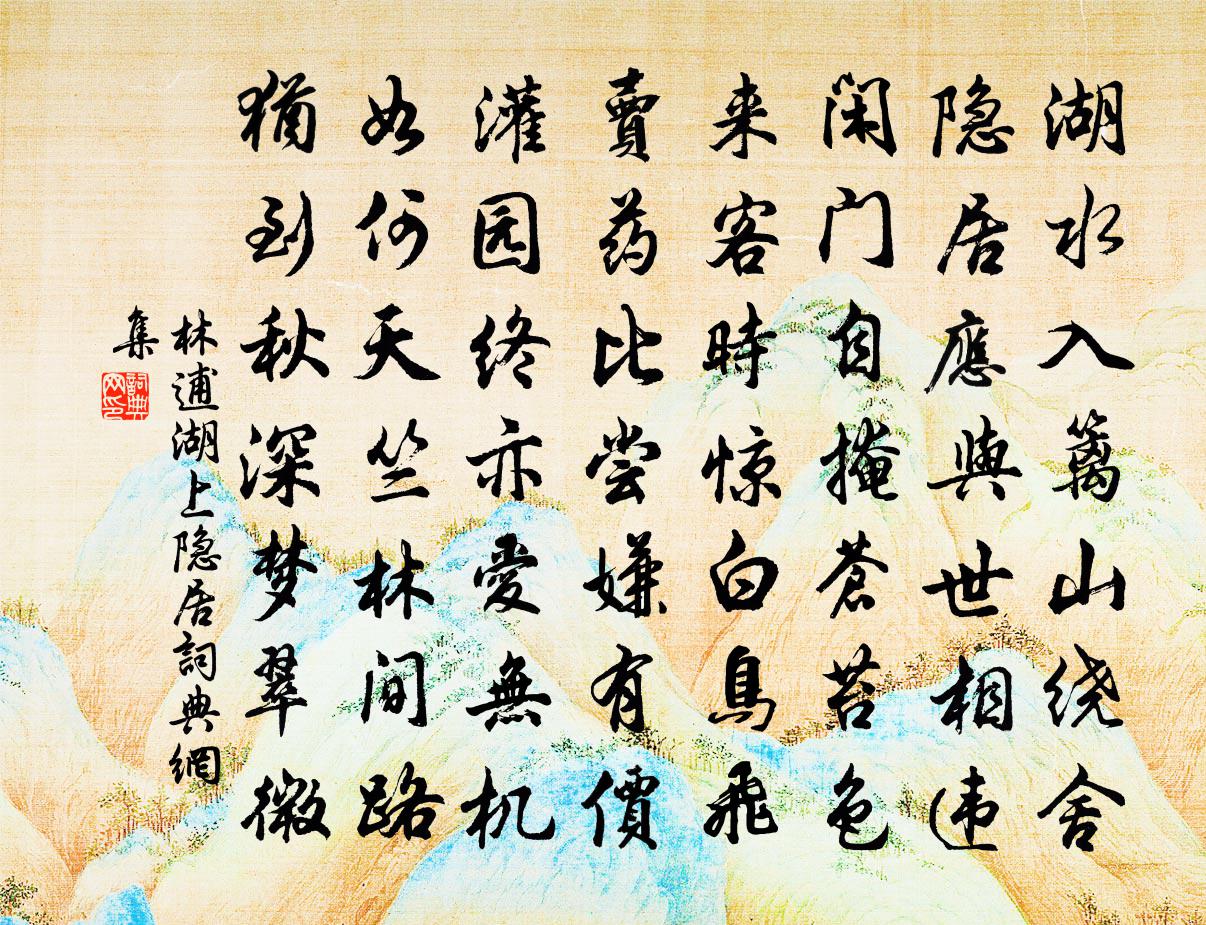 湖水入篱山绕舍
隐居應與世相违
闲门自掩苍苔色
来客時惊白鳥飛
賣药比尝嫌有價
灌园终亦愛無机
如何天竺林间路
猶到秋深梦翠微
林逋湖上隐居詞典網
集
詞典网印